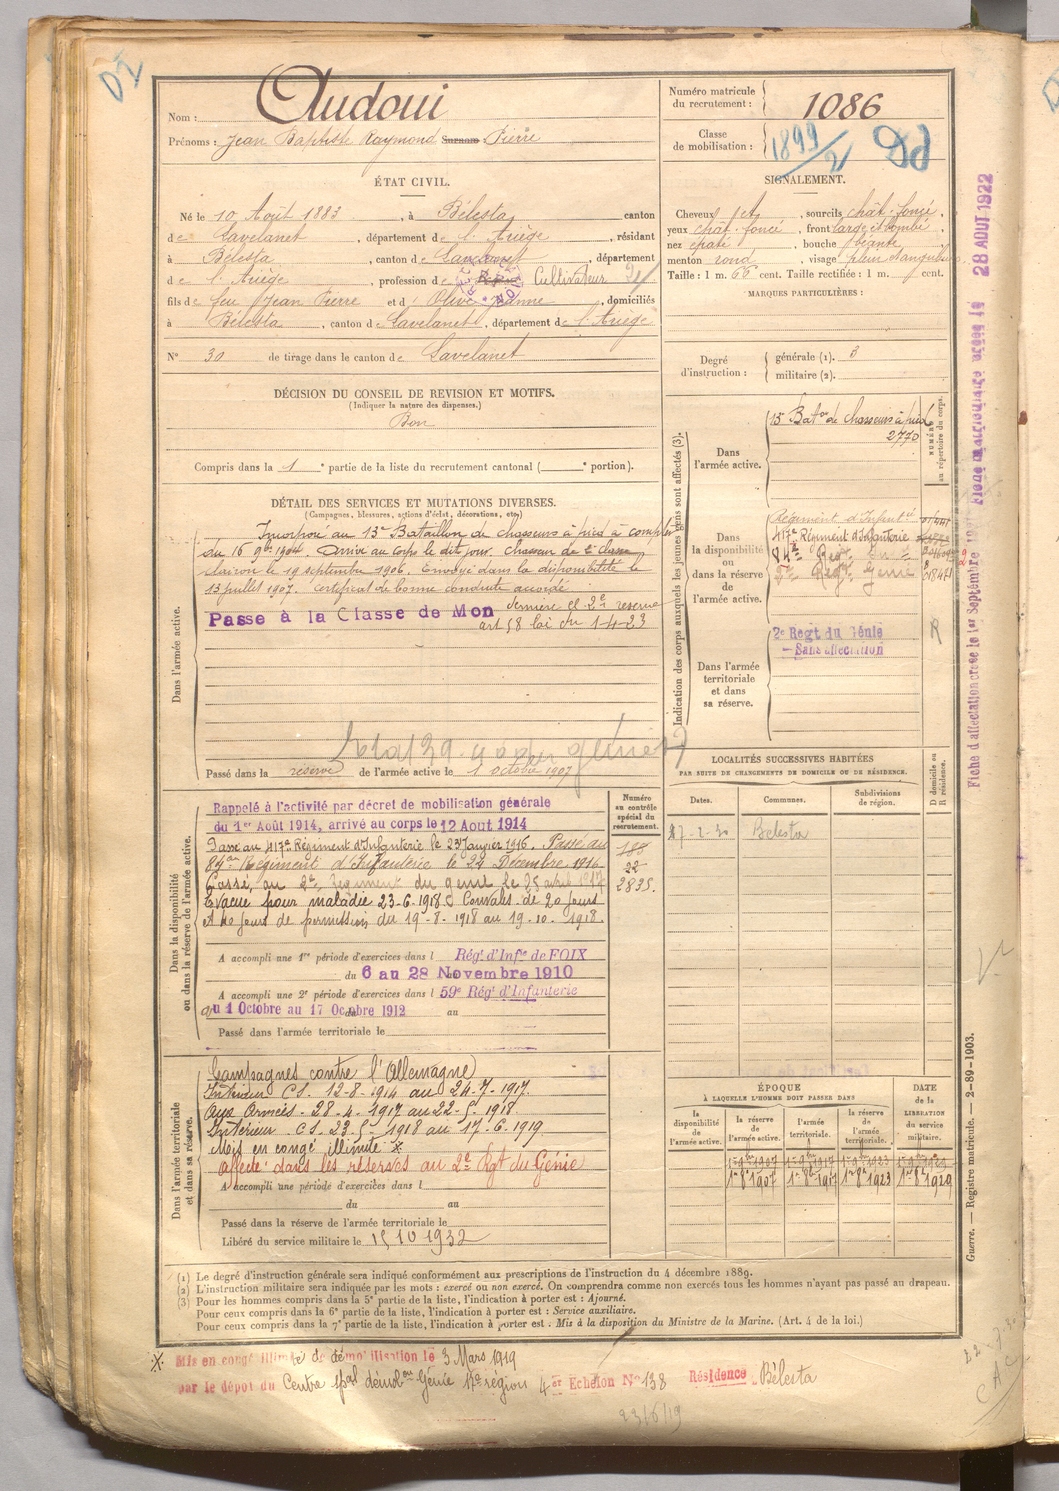 Nom : Audoui
Prénoms : Jean Baptiste Raymond Surnom Pierre
Numéro matricule du recrutement : 1086
Classe de mobilisation : 1899/2
ÉTAT CIVIL.
Né le 10 Août 1883, à Bélesta canton
de Lavelanet, département de l'Ariège, résidant
à Bélesta, canton de Lavelanet, département
de l'Ariège, profession de Cultivateur
fils de feu Jean Pierre et d'Olive Jeanne, domiciliés
à Bélesta, canton de Lavelanet, département de l'Ariège
N° 30 de tirage dans le canton de Lavelanet
SIGNALEMENT.
Cheveux et, sourcils chât-foncé,
yeux chât-foncé, front large et bombé
nez épaté, bouche béante,
menton rond, visage plein sanguin
Taille : 1 m. 66 cent. Taille rectifiée : 1 m. cent.
MARQUES PARTICULIÈRES :
Degré d'instruction :
générale (1). 3
militaire (2).
DÉCISION DU CONSEIL DE REVISION ET MOTIFS.
(Indiquer la nature des dispenses.)
Bon
Compris dans la 1e partie de la liste du recrutement cantonal ( e portion).
DÉTAIL DES SERVICES ET MUTATIONS DIVERSES.
(Campagnes, blessures, actions d'éclat, décorations, etc.)
Dans l'armée active.
Incorporé au 13e Bataillon de chasseurs à pied à compter
du 16 9bre 1904. Arrivé au corps le dit jour. Chasseur de 2e classe
clairon le 19 septembre 1906. Envoyé dans la disponibilité le
13 juillet 1907. Certificat de bonne conduite accordé.
Passe à la Classe de Mon dernière et 2e reserve
art 58 loi du 1-4-23
Passé dans la réserve de l'armée active le 1 octobre 1907
Indication des corps auxquels les jeunes gens sont affectés (3).
NUMÉRO au répertoire du corps.
Dans l'armée active.
13e Baton de chasseurs à pied
2770
Dans la disponibilité ou dans la réserve de l'armée active.
Régiment d'Infanie
417e Régiment d'Infanterie
Regt Génie
Dans l'armée territoriale et dans sa réserve.
2e Regt du Génie
Sans affectation
R
LOCALITÉS SUCCESSIVES HABITÉES
PAR SUITE DE CHANGEMENTS DE DOMICILE OU DE RÉSIDENCE.
Dates.
Communes.
Subdivisions de région.
D domicile ou R résidence.
17-2-30 Bélesta
Dans la disponibilité ou dans la réserve de l'armée active.
Numéro au contrôle spécial du recrutement.
188
22
2835.
Rappelé à l'activité par décret de mobilisation générale
du 1er Août 1914, arrivé au corps le 12 Aout 1914
Passé au 417e Régiment d'Infanterie le 23 Janvier 1916. Passé au
84e Régiment d'Infanterie le 22 Décembre 1916
Passé au 2e Régiment du génie le 25 avril 1917
Evacué pour maladie 23-6-1918. Convales. de 20 jours
et 10 jours de permission du 19-8-1918 au 19-10-1918.
A accompli une 1re période d'exercices dans l Rég. d'Infie de FOIX
du 6 au 28 Novembre 1910
A accompli une 2e période d'exercices dans l 59e Rég. d'Infanterie
du 1 Octobre au 17 Octobre 1912 au
Passé dans l'armée territoriale le
Dans l'armée territoriale et dans sa réserve.
Campagnes contre l'Allemagne
Intérieur CS. 12-8-1914 au 24-7-1917.
Aux Armées - 28-4-1917 au 22-5-1918.
Intérieur CS 23-5-1918 au 17-6-1919.
Mis en congé illimité X
affecté dans les réserves au 2e Rgt du Génie
A accompli une période d'exercices dans l
du au
Passé dans la réserve de l'armée territoriale le
Libéré du service militaire le 15 10 1932
ÉPOQUE
À LAQUELLE L'HOMME DOIT PASSER DANS
la disponibilité de l'armée active.
la réserve de l'armée active.
l'armée territoriale.
la réserve de l'armée territoriale.
DATE de la LIBÉRATION du service militaire.
1er 9bre 1907 1er 9bre 1917 1er 9bre 1923 1er 9bre 1929
1er 8bre 1907 1er 8bre 1917 1er 8bre 1923 1er 8bre 1929
(1) Le degré d'instruction générale sera indiqué conformément aux prescriptions de l'instruction du 4 décembre 1889.
(2) L'instruction militaire sera indiquée par les mots : exercé ou non exercé. On comprendra comme non exercés tous les hommes n'ayant pas passé au drapeau.
(3) Pour les hommes compris dans la 5e partie de la liste, l'indication à porter est : Ajourné.
Pour ceux compris dans la 6e partie de la liste, l'indication à porter est : Service auxiliaire.
Pour ceux compris dans la 7e partie de la liste, l'indication à porter est : Mis à la disposition du Ministre de la Marine. (Art. 4 de la loi.)
X. Mis en congé illimité de démobilisation le 3 Mars 1919
par le dépot du Centre spal démobon Génie 17e région 4e Echelon N° 138 Résidence Bélesta
23/6/19
Fiche d'affectation créée le 1er Septembre
Fiche matriculaire créée le 28 AOUT 1922
Guerre. — Registre matricule. — 2-89-1903.